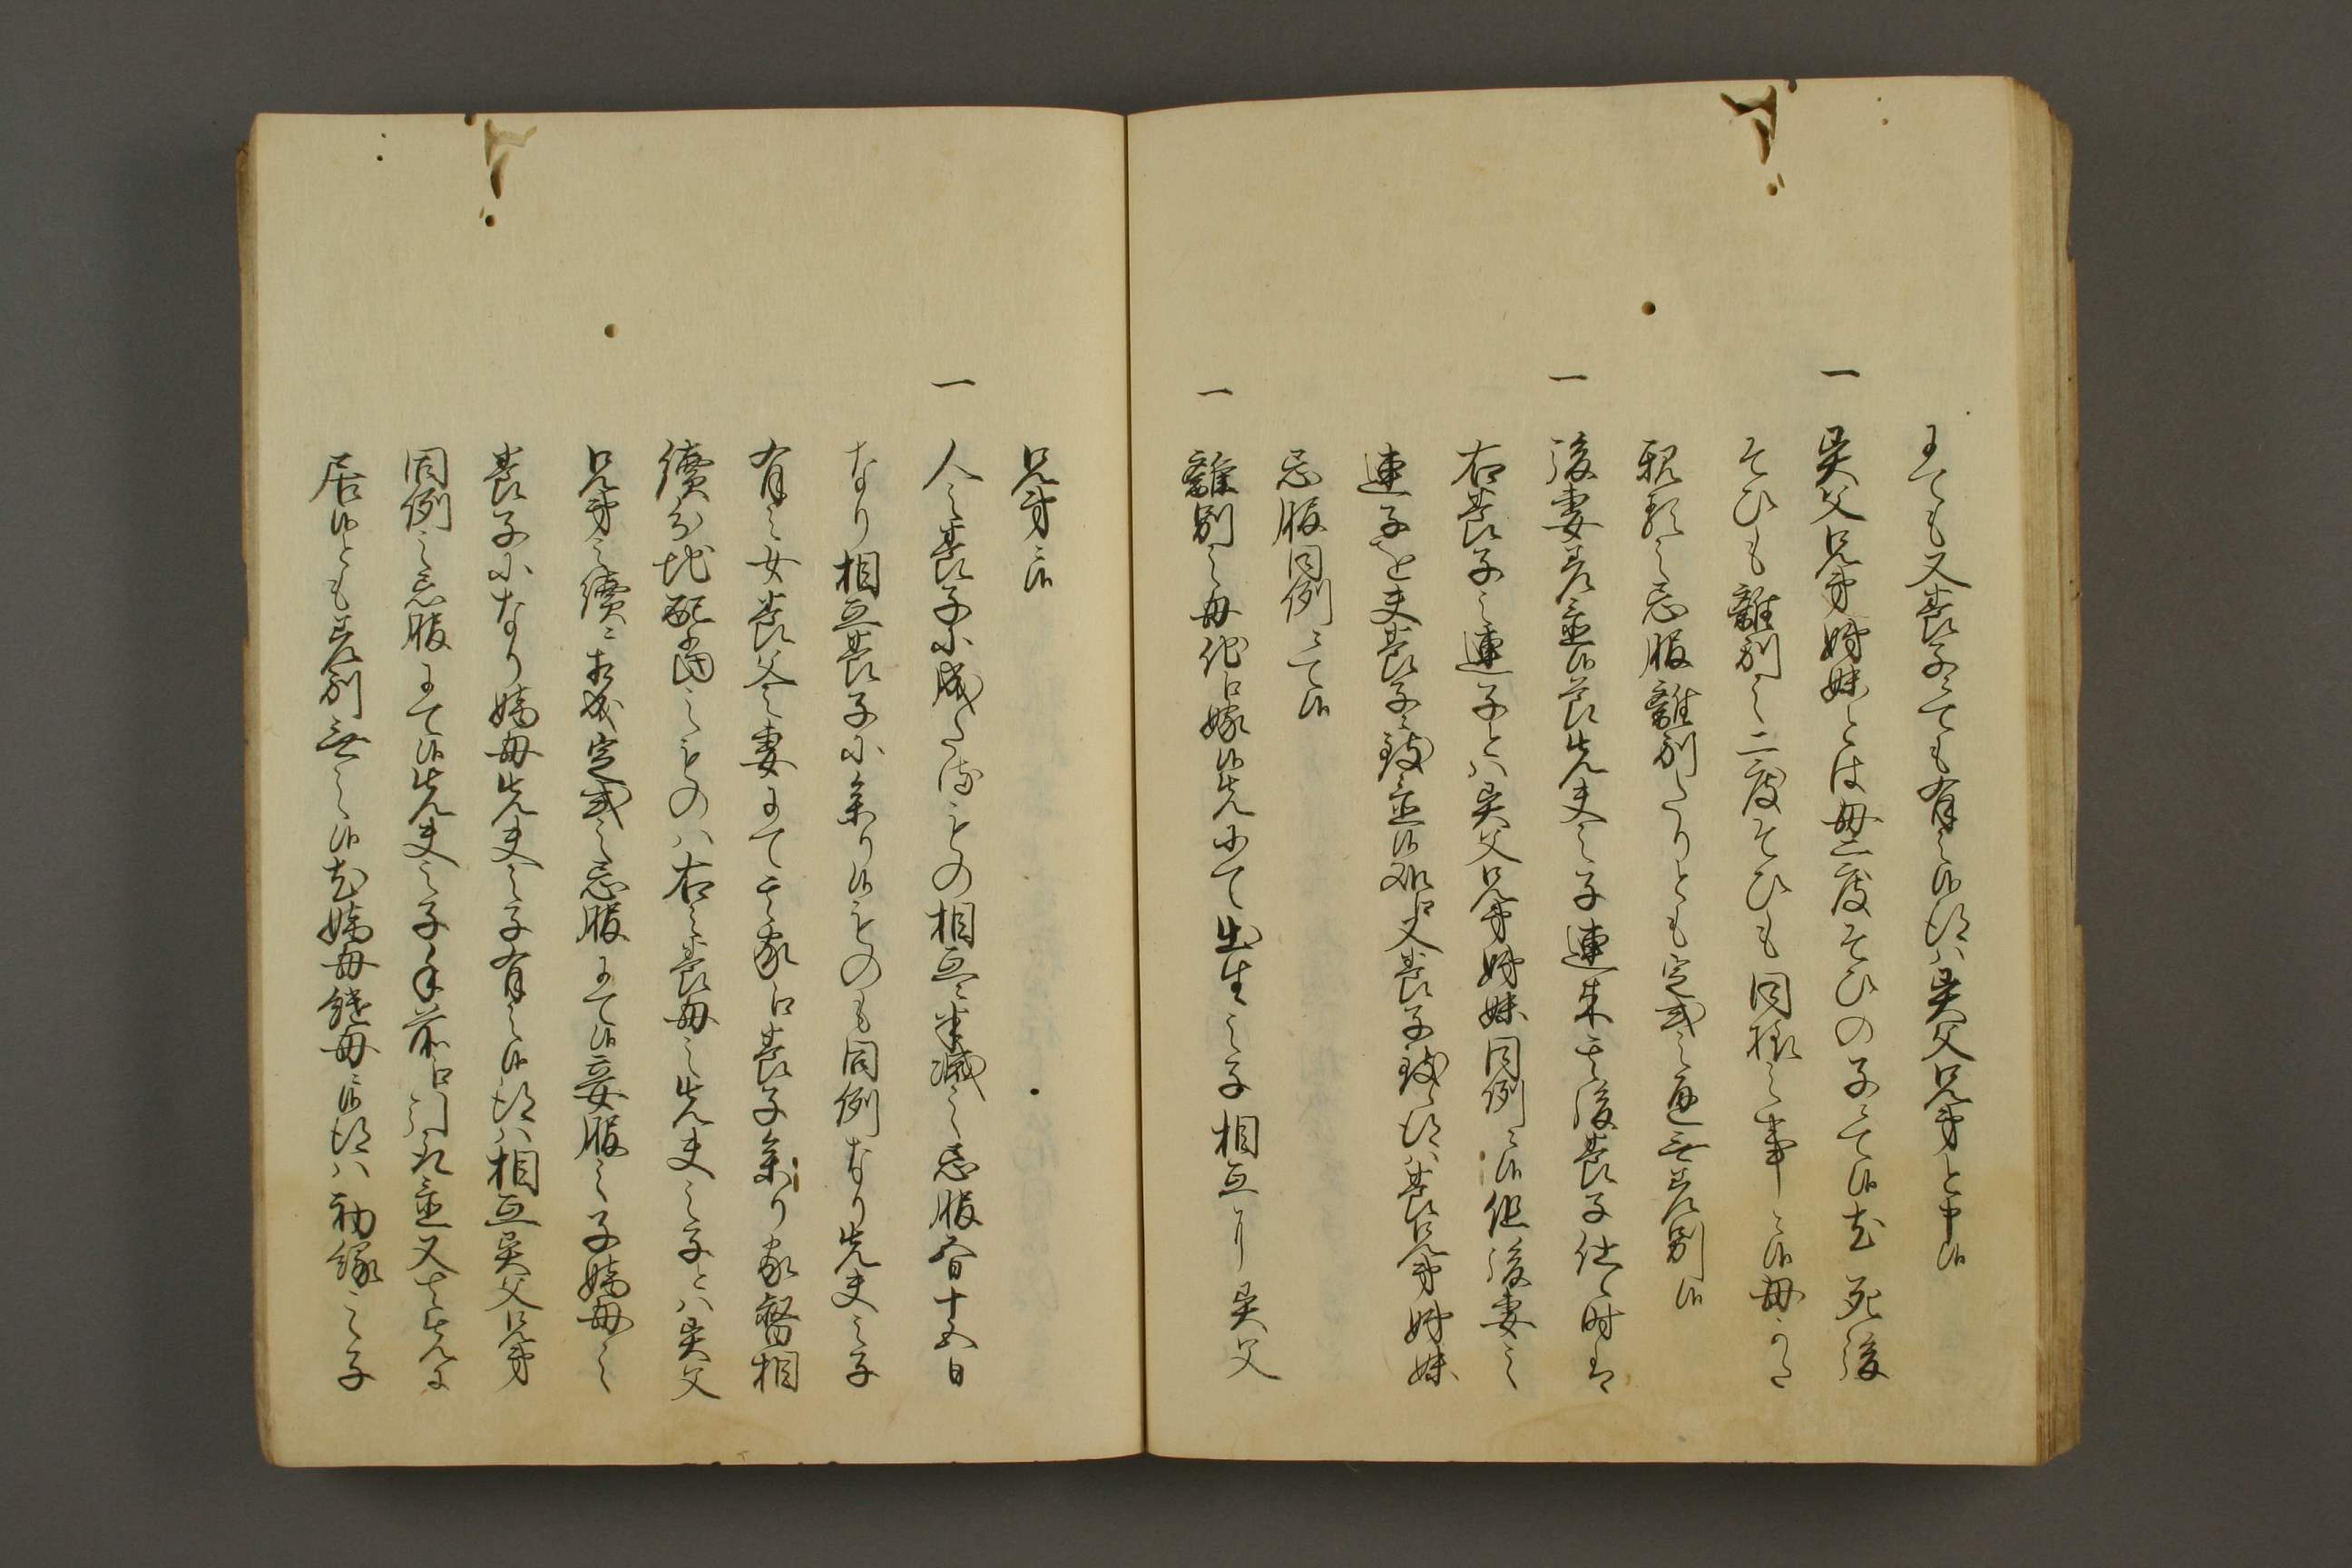 にても又養子にても有之候得ハ異父兄弟と申候
一 異父兄弟姉妹とは母二度そひの子にて候尤死後
そひも離別之二度そひも同様之事ニ候母かた
親類之忌服離別たりとも定式之通無差別候
一 後妻差置候養先夫之子連来其後養子仕候時は
右養子之連子とハ異父兄弟姉妹同例ニ候但後妻之
連子を夫養子ニ致置候処又養子致候得ハ養兄弟姉妹
忌服同例ニて候
一 離別之母他江嫁候先ニて出生之子相互ニ異父
兄弟ニ候
一 人之養子に成たるもの相互ニ半減之忌服各十五日
なり相互養子に参り候ものも同例なり先夫之子
有之女養父之妻にて其家江養子参り家督相
続分地配当之ものハ右之養母之先夫之子とハ異父
兄弟之続ニ相成定式之忌服にて候妾服之子嫡母之
養子になり嫡母先夫之子有之候得ハ相互異父兄弟
同例之忌服にて候先夫之子手前江引取置又其先に
居候とも差別無之候尤嫡母継母ニ候得ハ初縁之子